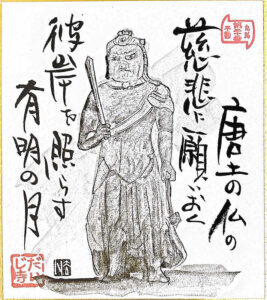 唐土の仏の
慈悲に願いおく
彼岸を照らす
有明の月